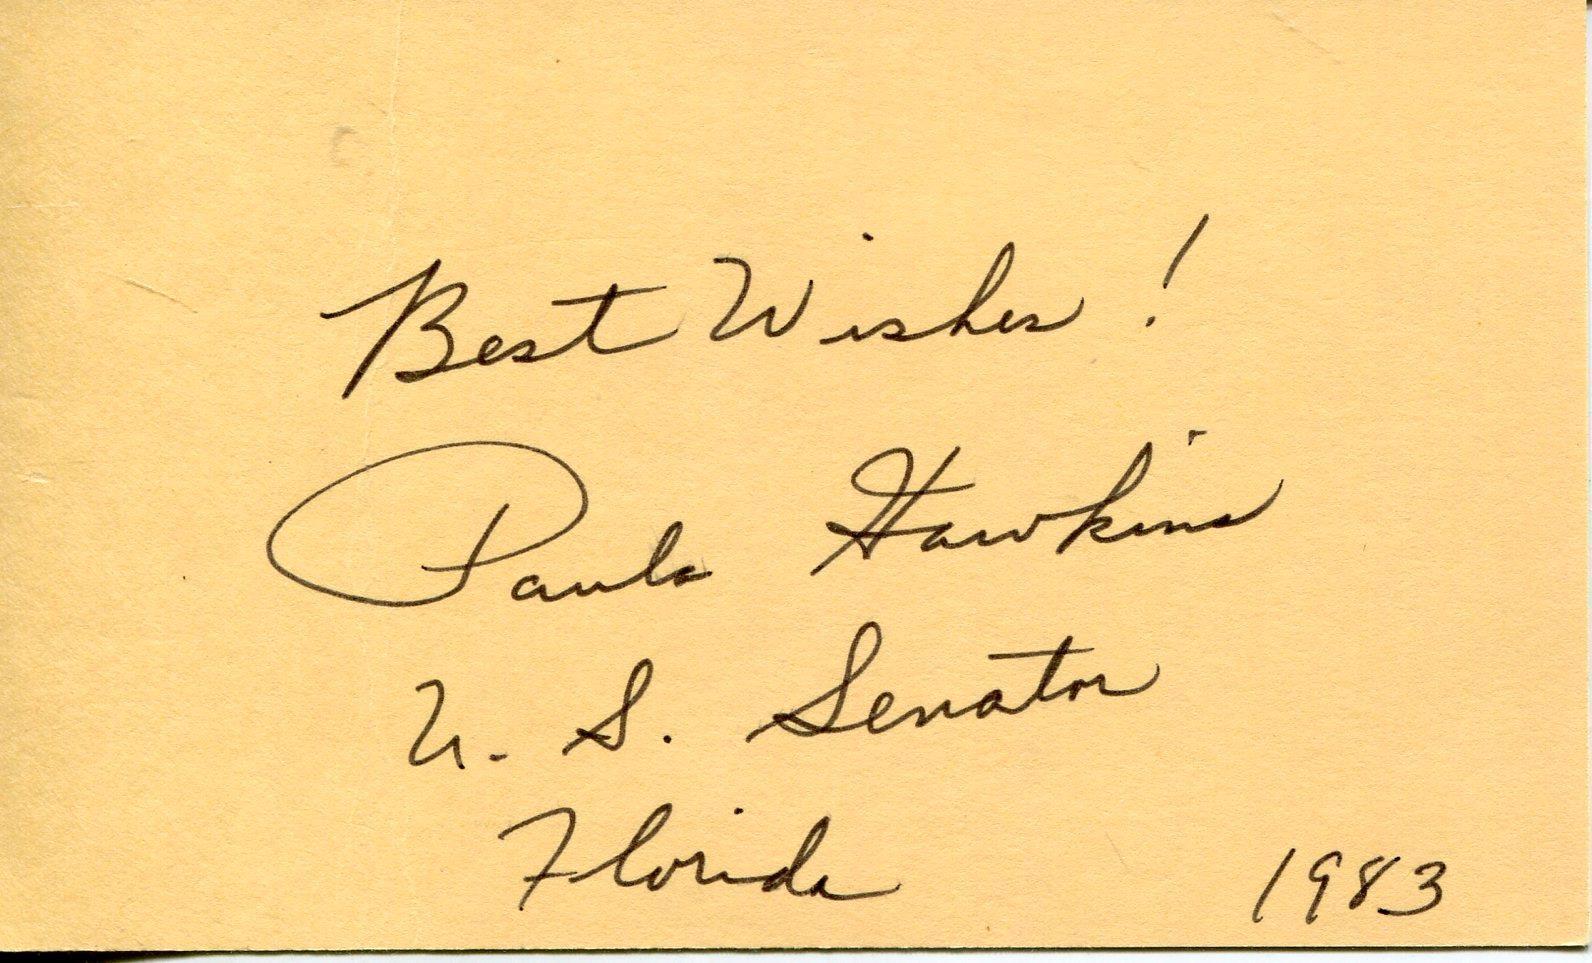 Best Wishes!
Paula Hawkins
U. S. Senator
Florida
1983